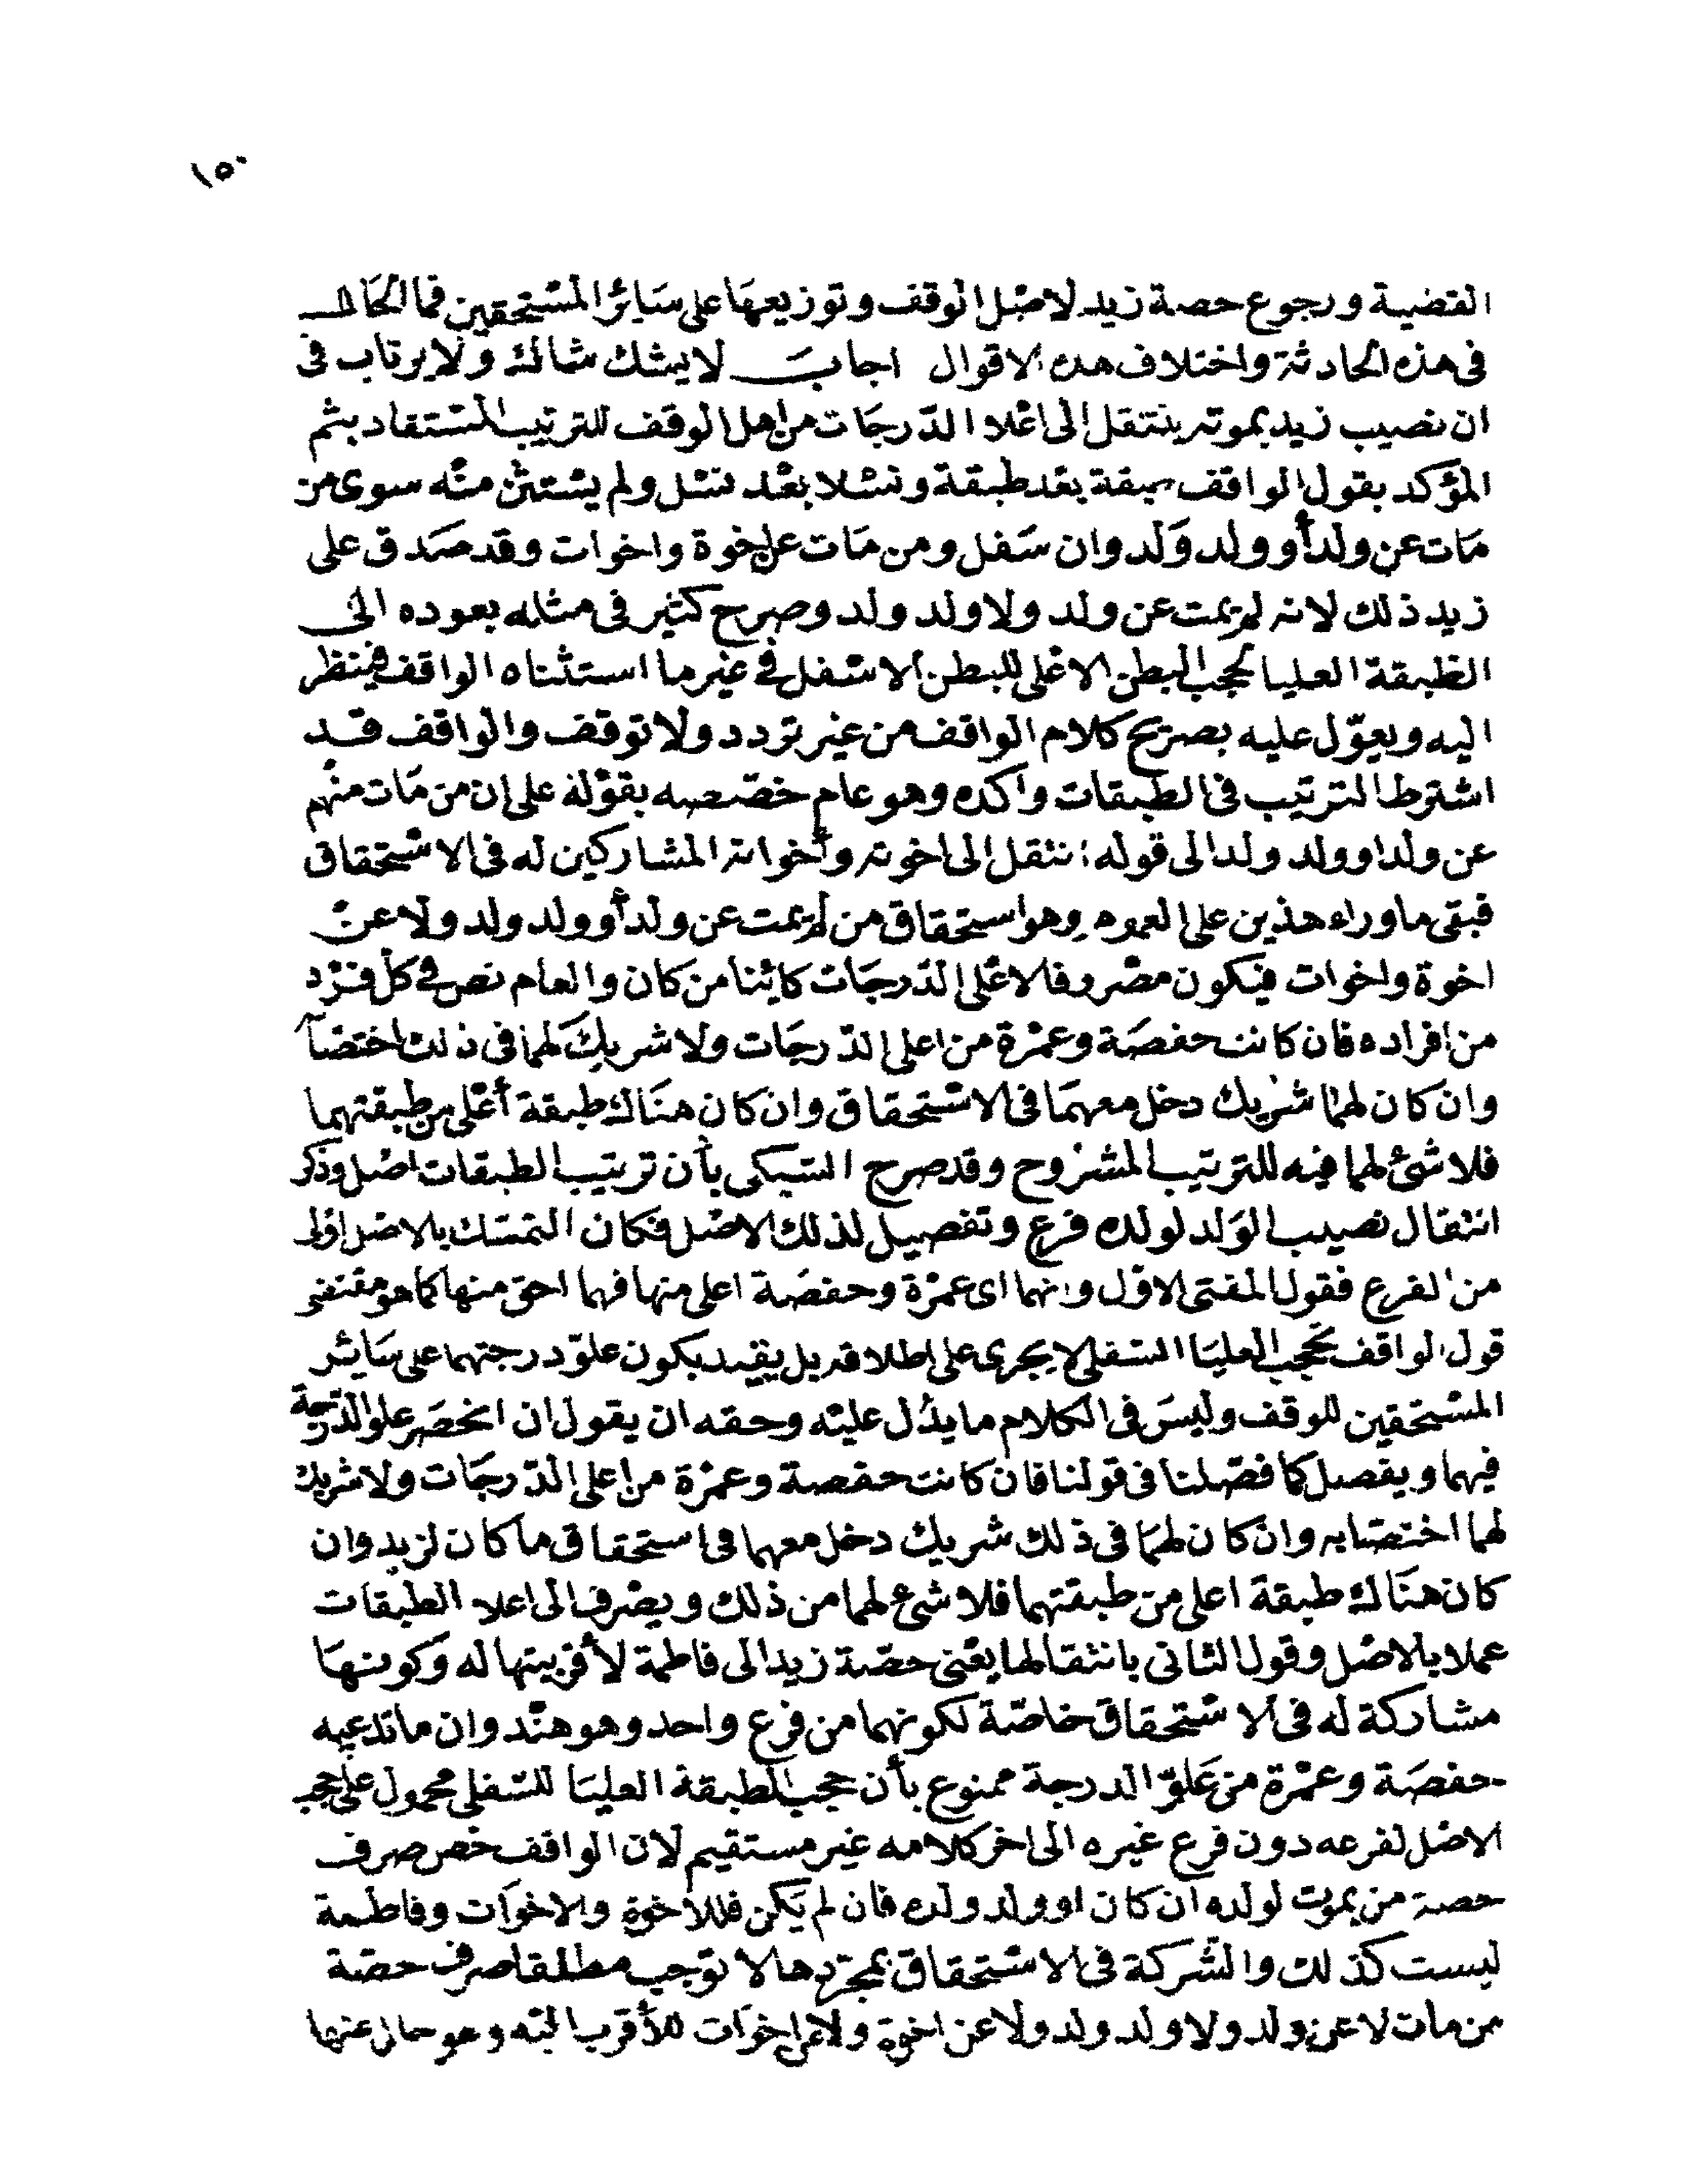 ١٥٠
القضية ورجوع حصة زيد لاصل الوقف وتوزيعها على سائر المستحقين فما الحال
فى هذه الحادثة واختلاف هذه الاقوال اجاب لا يشك شاك ولا يرتاب فى
ان نصيب زيد بموته ينتقل الى اعلا الدرجات من اهل الوقف للترتيب المستفاد بثم
المؤكد بقول الواقف طبقة بعد طبقة ونسلا بعد نسل ولم يستثن منه سوى من
مات عن ولد أو ولد ولد وان سفل ومن مات عن اخوة واخوات وقد صدق على
زيد ذلك لانه لم يمت عن ولد ولا ولد ولد وصرح كثير فى مثله بعوده الى
الطبقة العليا لحجب البطن الاعلى للبطن الاسفل فى غير ما استثناه الواقف فينظر
اليه ويعوّل عليه بصريح كلام الواقف من غير تردد ولا توقف والواقف قد
اشترط الترتيب فى الطبقات واكده وهو عام خصصه بقوله على ان من مات منهم
عن ولد او ولد ولد الى قوله انتقل الى اخوته وأخواته المشاركين له فى الاستحقاق
فبقى ما وراء هذين على العموم وهو استحقاق من لم يمت عن ولد أو ولد ولد ولا عن
اخوة واخوات فيكون مصروفا لاعلى الدرجات كائنا من كان والعام نص فى كل فرد
من افراده فان كانت حفصة وعمرة من اعلى الدرجات ولا شريك لهما فى ذلك اختصا
وان كان لهما شريك دخل معهما فى الاستحقاق وان كان هناك طبقة أعلى من طبقتهما
فلا شئ لهما فيه للترتيب المشروح وقد صرح السبكى بأن ترتيب الطبقات اصل وذكر
انتقال نصيب الولد لولده فرع وتفصيل لذلك الاصل فكان التمسك بالاصل اولى
من الفرع فقول المفتى الاول وانهما اى عمرة وحفصة اعلى منها فهما احق منها كما هو مقتضى
قول الواقف تحجب العليا السفلى لا يجرى على اطلاقه بل يقيد بكون علوّ درجتهما على سائر
المستحقين للوقف وليس فى الكلام ما يدل عليه وحقه ان يقول ان انحصر علو الدرجة
فيهما ويفصل كما فصلنا فى قولنا فان كانت حفصة وعمرة من اعلى الدرجات ولا شريك
لهما اختصا به وان كان لهما فى ذلك شريك دخل معهما فى استحقاق ما كان لزيد وان
كان هناك طبقة اعلى من طبقتهما فلا شئ لهما من ذلك ويصرف الى اعلا الطبقات
عملا بالاصل وقول الثانى بانتقالها يعنى حصة زيد الى فاطمة لأقربيتها له وكونها
مشاركة له فى الاستحقاق خاصة لكونهما من فرع واحد وهو هند وان ما تدعيه
حفصة وعمرة من علوّ الدرجة ممنوع بأن حجب الطبقة العليا للسفلى محمول على حجب
الاصل لفرعه دون فرع غيره الى اخر كلامه غير مستقيم لان الواقف خص صرف
حصة من يموت لولده ان كان او ولد ولده فان لم يكن فللأخوة والاخوات وفاطمة
ليست كذلك والشركة فى الاستحقاق بمجردها لا توجب مطلقا صرف حصة
من مات لا عن ولد ولا ولد ولد ولا عن اخوة ولا عن اخوات للأقرب اليه وهو خال عنها